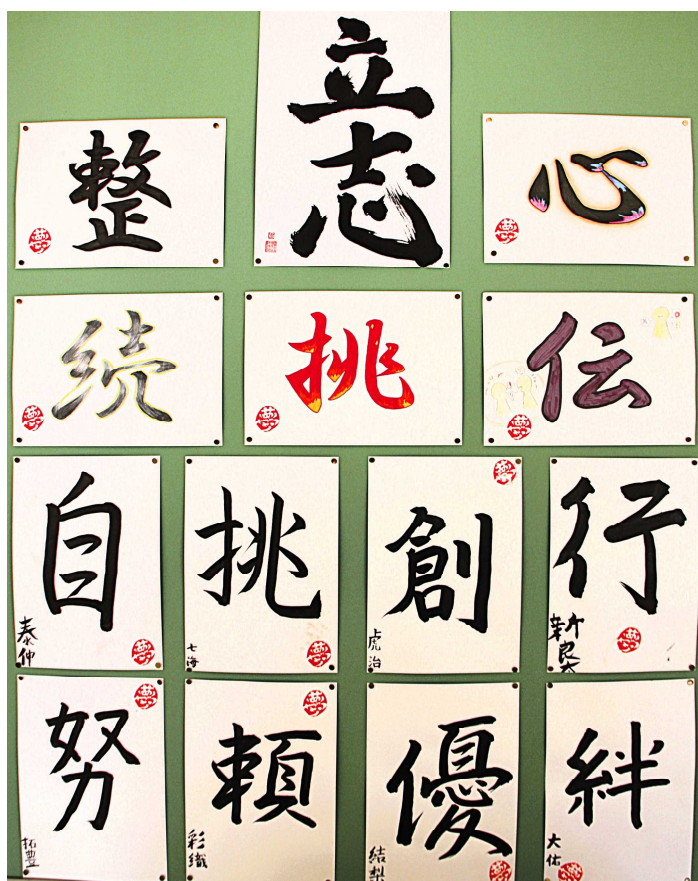 立志
整
心
続
挑
伝
自
泰伸
挑
七海
創
虎治
行
新良太
努
拓豊
頼
彩織
優
結梨
絆
大佑